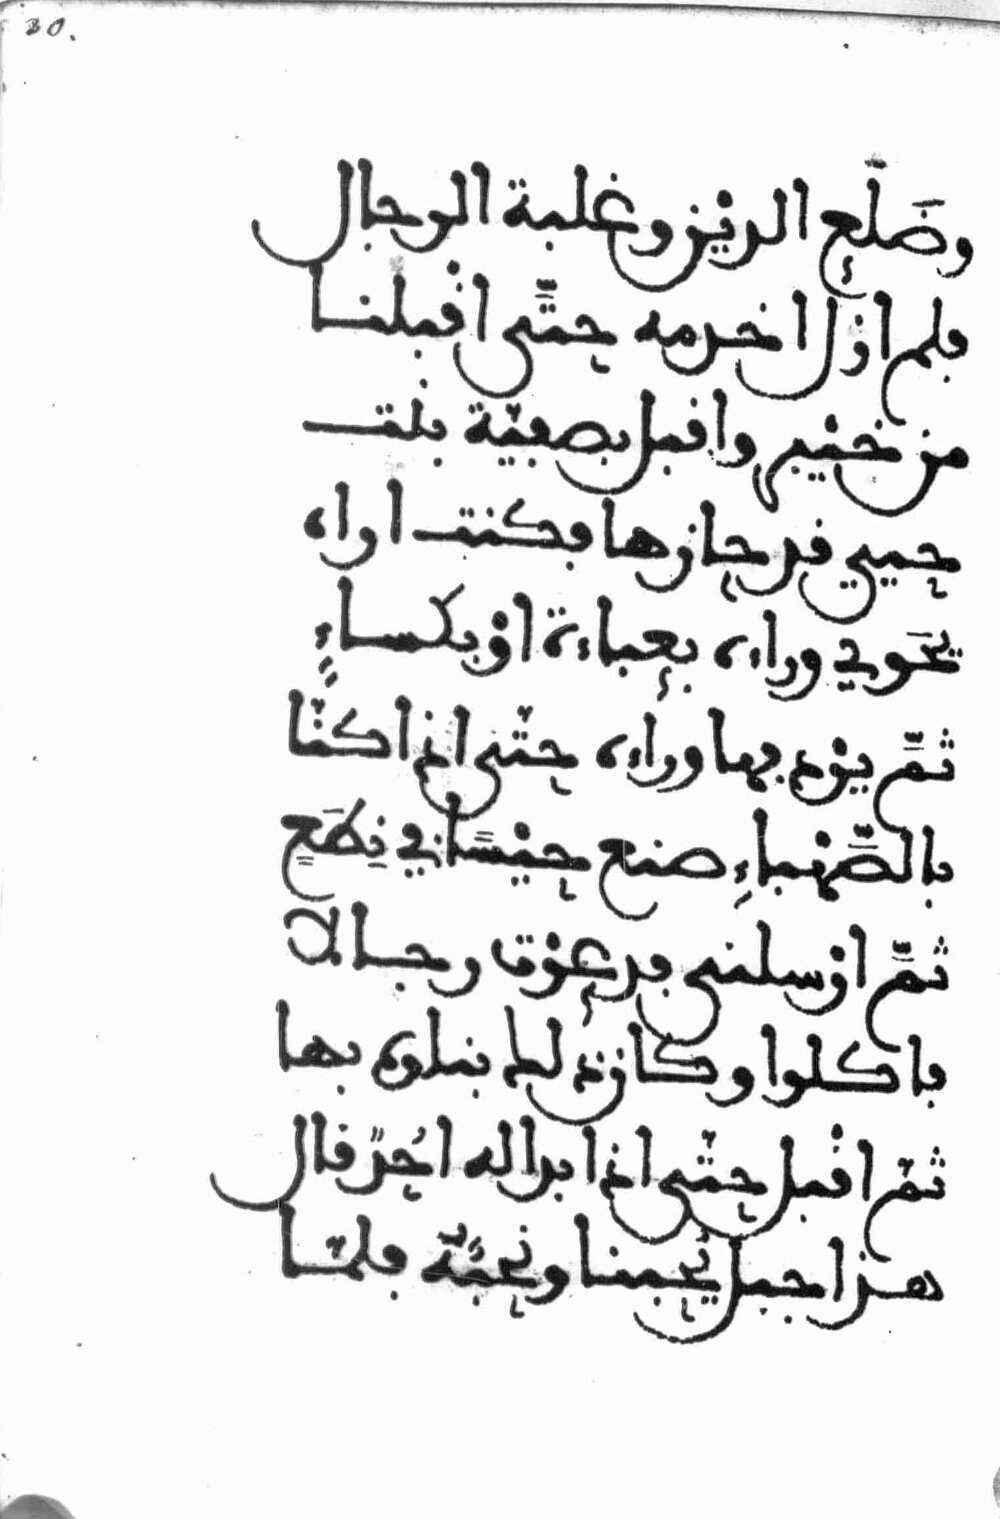 30.
وضَلَعِ الدين وغلبة الرجال
فلم ازل اخدمه حتّى اقبلنا
من خيبر واقبل بصفيّة بنت
حيي قد حازها فكنت اراه
يحَوي وراءه بعباءة اوْ بكساءٍ
ثمّ يردفها وراءه حتّى اذا كنّا
بالصّهْباءِ صنع حيْسًا في نِطَعٍ
ثمّ ارْسلني فدعوْت رجالا
فاكلوا وكان ذلك بناءه بها
ثمّ اقْبل حتّى اذا بدا له احُدٌ قال
هذا جبل يُحِبنا ونحِبّه فلمّا